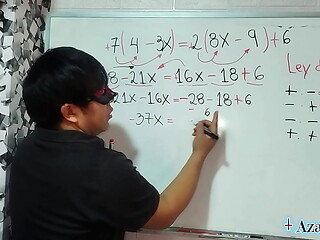 +7(4 -3x)=2(8x -9)+6
28 -21x = 16x -18+6
-21x -16x = -28-18+6
6
-37x =
Ley d
+
-
+
+
Aza